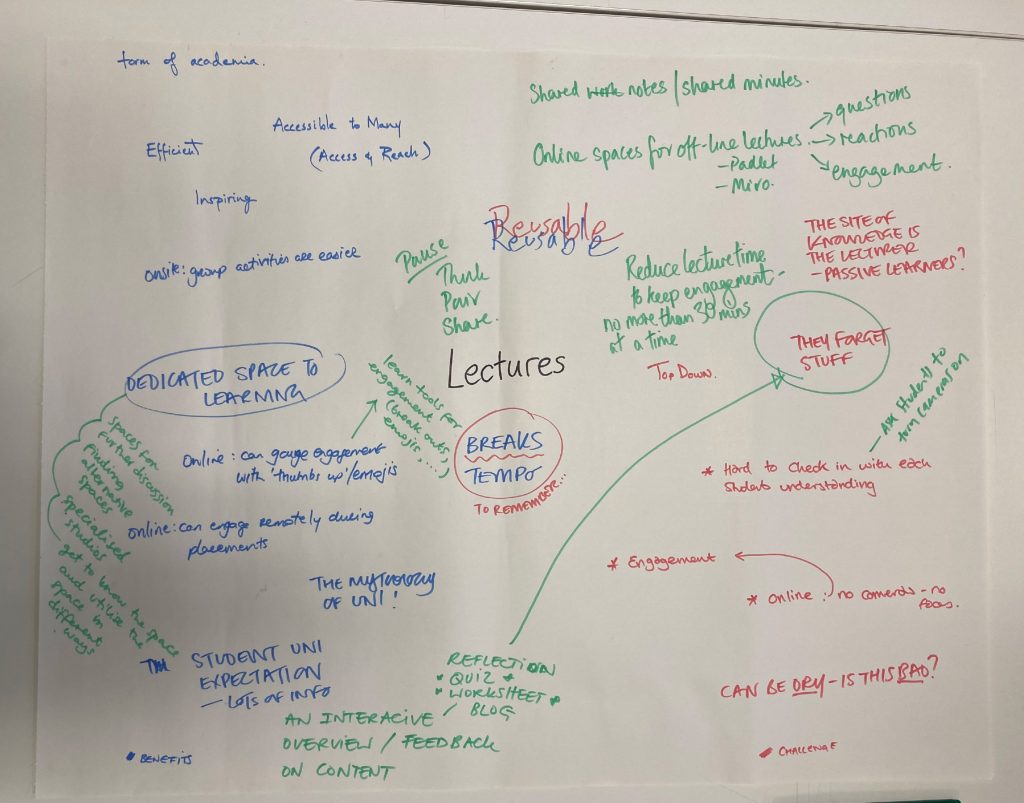 form of academia.
Efficient
Accessible to Many
(Access & Reach)
Inspiring
Onsite: group activities are easier
Shared work notes / shared minutes.
Online spaces for off-line lectures.
- Padlet
- Miro.
questions
reactions
engagement.
Reusable
Reusable
Pause
Think
Pair
Share.
Reduce lecture time
to keep engagement -
no more than 30 mins
at a time
THE SITE OF
KNOWLEDGE IS
THE LECTURER
- PASSIVE LEARNERS?
Lectures
TOP DOWN.
THEY FORGET
STUFF
DEDICATED SPACE TO
LEARNING
learn tools for
engagement
(break outs,
emojis, ...)
BREAKS
TEMPO
TO REMEMBER...
Ask students to
turn cameras on
Online: can gauge engagement
with 'thumbs up'/emojis
* Hard to check in with each
students understanding
Spaces for
further discussion
Finding
alternative
spaces
specialised
studios
get to know the space
and utilise the
space in
different
ways
Online: can engage remotely during
placements
* Engagement
* Online: no cameras - no
focus.
THE MYTHOLOGY
OF UNI!
STUDENT UNI
EXPECTATION
- LOTS OF INFO
REFLECTION
• QUIZ •
• WORKSHEET •
/ BLOG
AN INTERACIVE
OVERVIEW / FEEDBACK
ON CONTENT
CAN BE DRY - IS THIS BAD?
BENEFITS
CHALLENGE